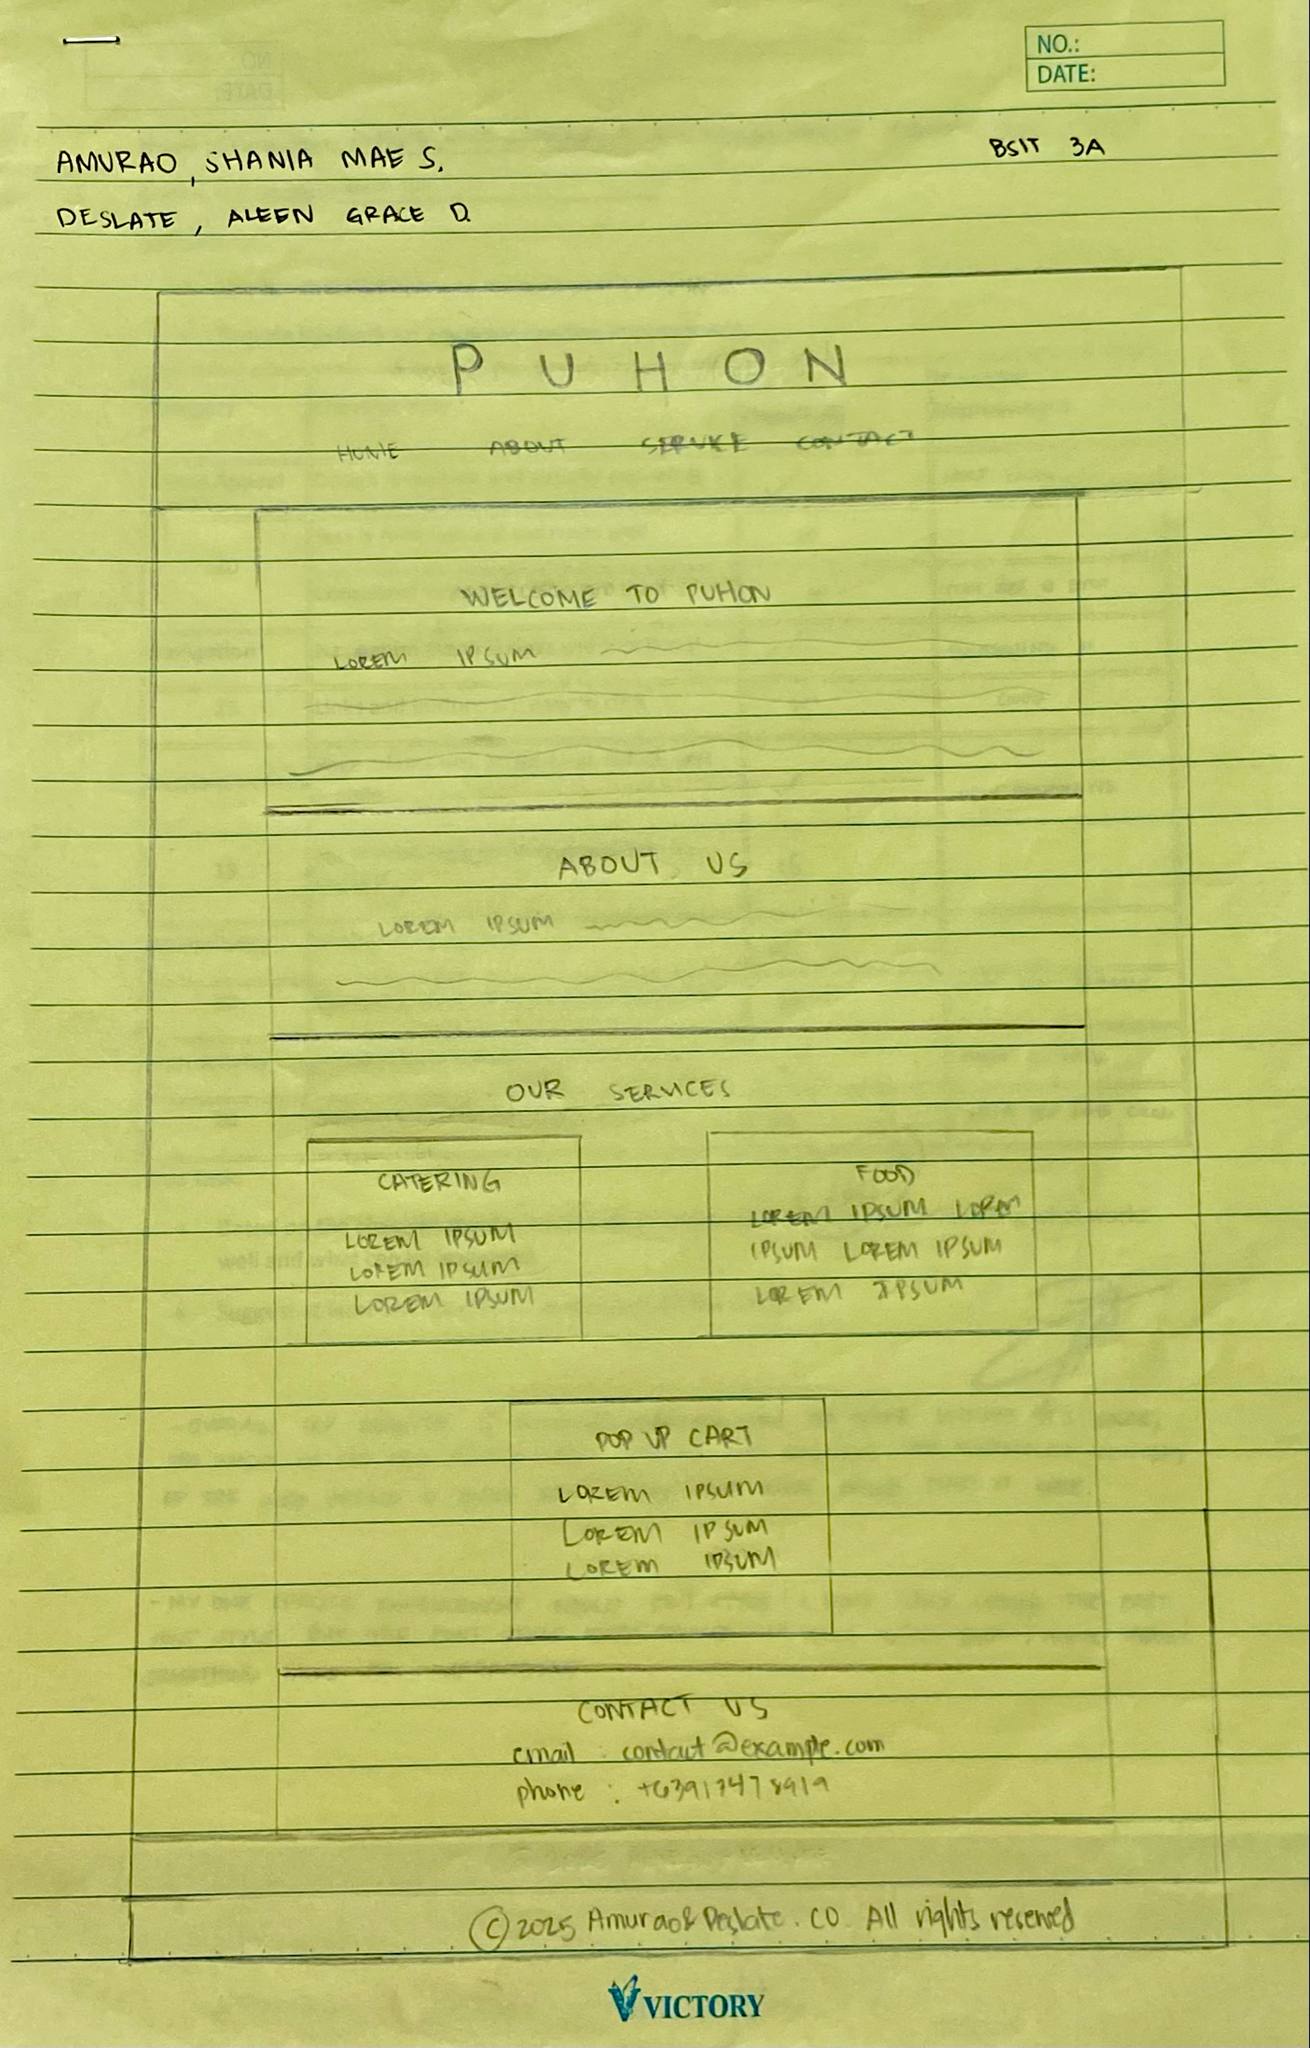 NO.:
DATE:
AMURAO, SHANIA MAE S. BSIT 3A
DESLATE, ALEEN GRACE D.
PUHON
HOME ABOUT SERVICE CONTACT
WELCOME TO PUHON
LOREM IPSUM
ABOUT US
LOREM IPSUM
OUR SERVICES
CATERING
LOREM IPSUM
LOREM IPSUM
LOREM IPSUM
FOOD
LOREM IPSUM LOREM
IPSUM LOREM IPSUM
LOREM IPSUM
POP UP CART
LOREM IPSUM
LOREM IPSUM
LOREM IPSUM
CONTACT US
email : contact@example.com
phone : +639174478919
©2025 Amurao&Deslate.CO. All rights reserved
VICTORY